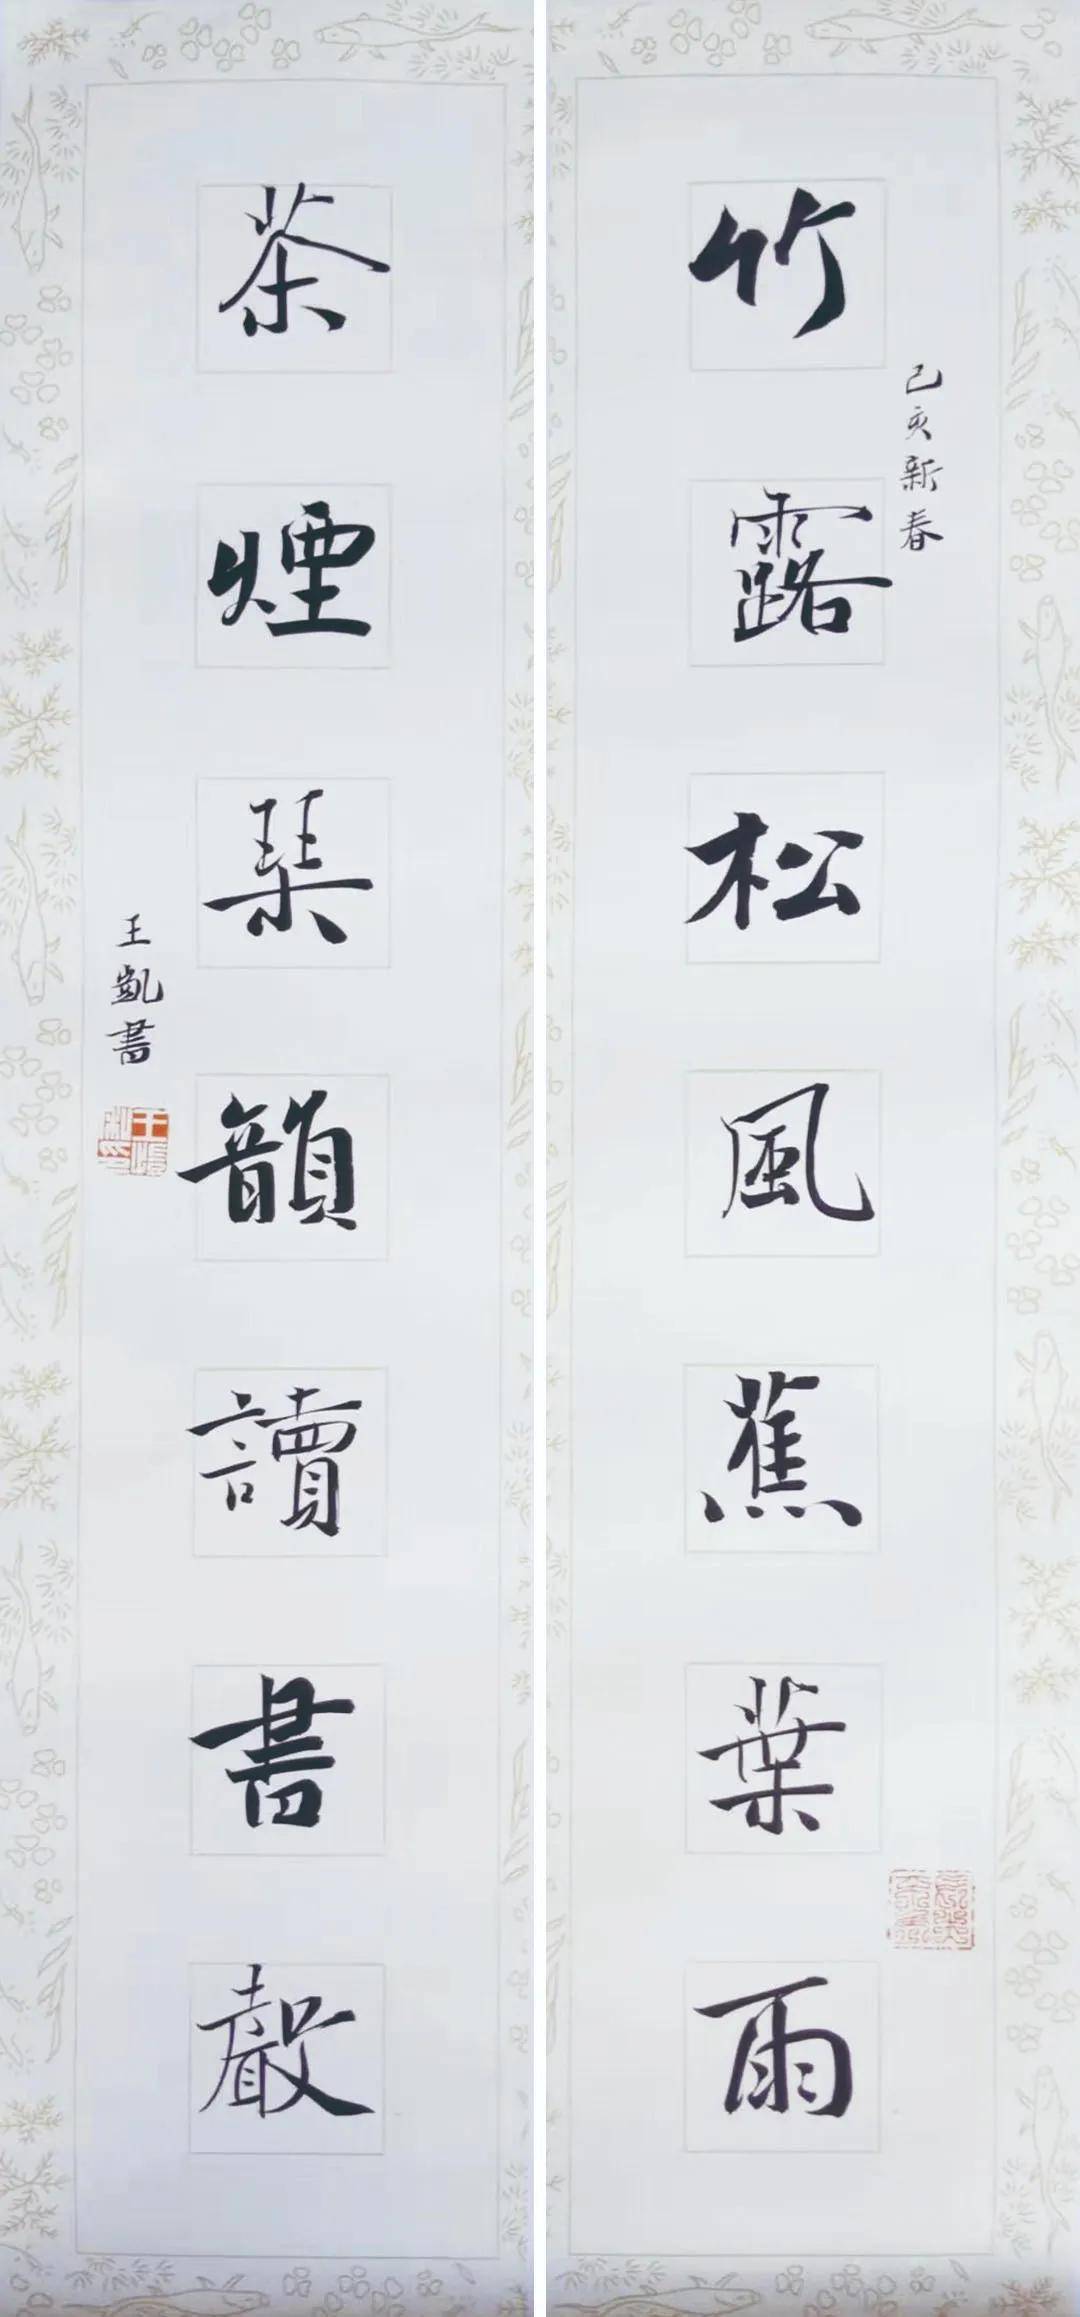 竹露松風蕉葉雨
己亥新春
茶煙琹韻讀書聲
王凱書